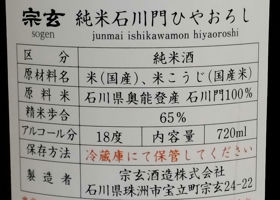 宗玄 純米石川門ひやおろし
sogen junmai ishikawamon hiyaoroshi
区分 純米酒
原材料名 米(国産)、米こうじ(国産米)
原料米 石川県奥能登産 石川門100%
精米歩合 65%
アルコール分 18度 内容量 720ml
保存方法 冷蔵庫にて保管してください
製造者 宗玄酒造株式会社
石川県珠洲市宝立町宗玄24-22